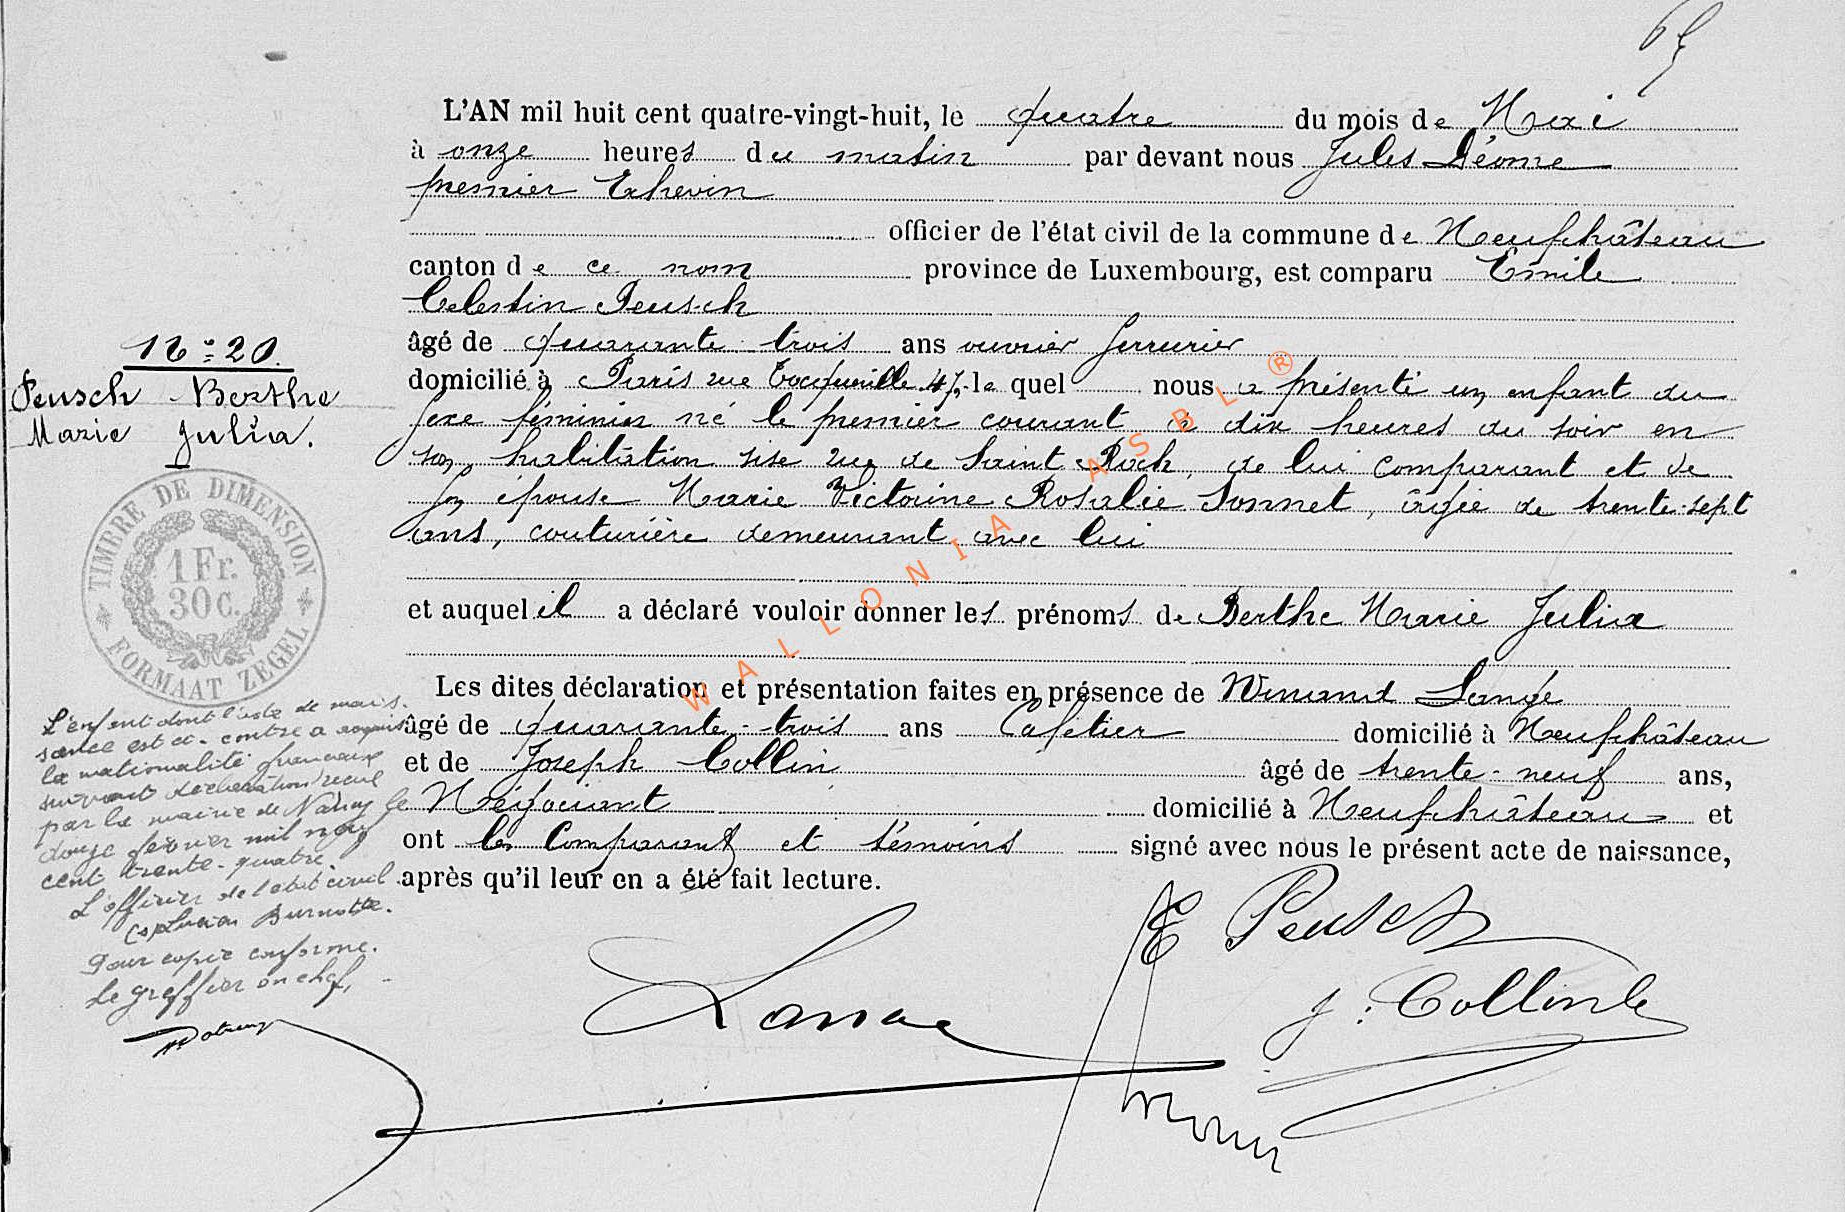 L'AN mil huit cent quatre-vingt-huit, le quatre du mois de Mai
à onze heures du matin par devant nous Jules Déome
premier Echevin
officier de l'état civil de la commune de Neufchâteau
canton de ce nom province de Luxembourg, est comparu Emile
Celestin Peusch
âgé de quarante trois ans ouvrier serrurier
domicilié à Paris rue Tocqueville 47, le quel nous a présenté un enfant du
sexe féminin né le premier courant à dix heures du soir en
son habitation sise rue de Saint Roch, de lui comparant et de
son épouse Marie Victorine Rosalie Sonnet, âgée de trente-sept
ans, couturière demeurant avec lui
et auquel il a déclaré vouloir donner les prénoms de Berthe Marie Julia
Les dites déclaration et présentation faites en présence de Winand Lange
âgé de quarante-trois ans Cafetier domicilié à Neufchâteau
et de Joseph Collin âgé de trente-neuf ans,
Négociant domicilié à Neufchâteau et
ont les Comparant et témoins signé avec nous le présent acte de naissance,
après qu'il leur en a été fait lecture.
N°=20.
Peusch Berthe
Marie Julia.
TIMBRE DE DIMENSION
1 Fr.
30 C.
FORMAAT ZEGEL
L'enfant dont l'acte de nais-
sance est ci-contre a acquis
la nationalité française
suivant déclaration recue
par la mairie de Nancy le
douze février mil neuf
cent trente-quatre.
L'officier de l'état civil.
(s) Lucien Burnotte.
Pour copie conforme.
Le greffier en chef,
E Peusch
Lange
J. Collin
WALLONIA ASBL ®